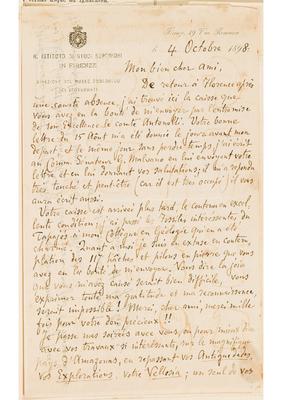 Firenze, 19 Via Romana
R. ISTITUTO DI STUDI SUPERIORI
IN FIRENZE
DIREZIONE DEL MUSEO ZOOLOGICO
DEI VERTEBRATI
li 4 Octobre 1898.
Mon bien cher Ami,
De retour à Florence après
une courte absence, j'ai trouvé ici la caisse que
vous avez eu la bonté de m'envoyer par l'entremise
de son Excellence le Comte Antonelli. Votre bonne
lettre du 15 Août m'a été donnée le jour avant mon
départ, et le même jour sans perdre temps, j'ai écrit
au Comm. Sénateur G. Malvano en lui envoyant votre
lettre et en lui donnant vos salutations; il m'a répondu
très touché et peut-être (car il est très occupé) il vous
aura écrit aussi.
Votre caisse est arrivée plus tard, le contenu en excel-
lente condition; j'ai passé les fossiles intéressantes, du
Tapajoz à mon Collègue en Géologie qui en a été
charmé. Quant à moi je suis en extase en contem-
plation des 117 hâches et pilons en pierre que vous
avez eu la bonté de m'envoyer. Vous dire la joie
que vous m'avez causé serait bien difficile, vous
exprimer toute ma gratitude et ma reconnaissance,
serait impossible! Merci, cher ami, merci mille
fois pour votre don précieux!
Je passe mes soirées avec vous, ou pour mieux dire
avec vos travaux si intéressants, sur le magnifique
pays d'Amazonas, en repassant vos Antiguidades,
vos Explorations, votre Vellosia; un seul de vos